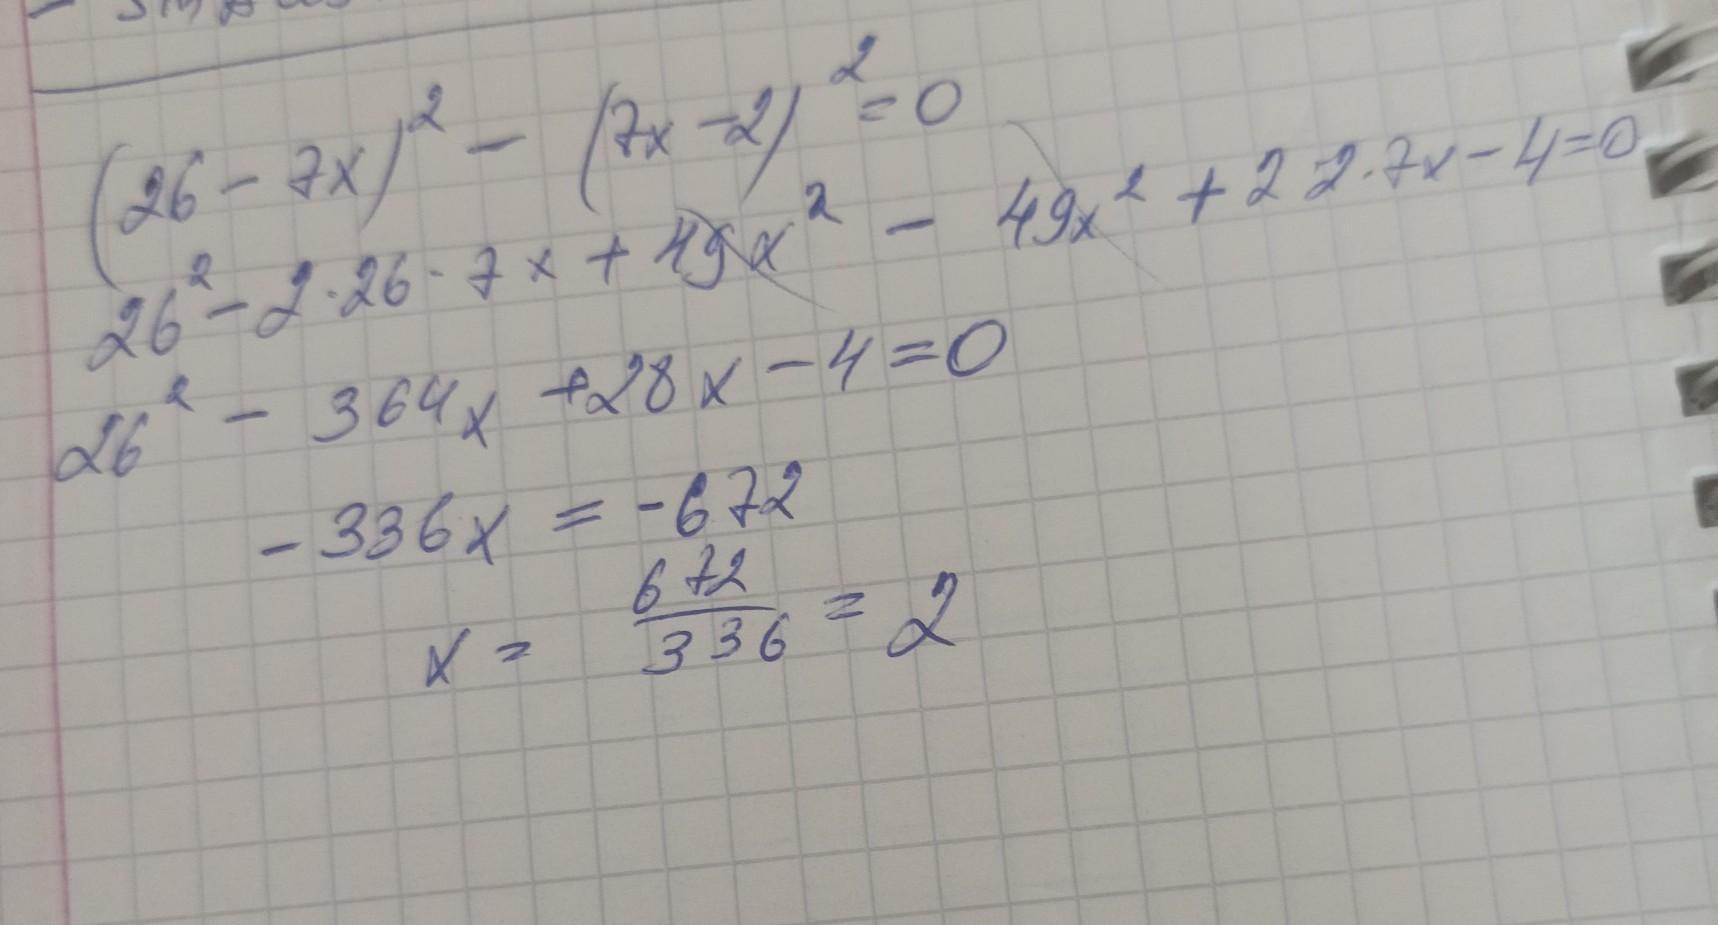 (26 - 7x)² - (7x - 2)² = 0
26² - 2·26·7x + 49x² - 49x² + 2 2·7x - 4 = 0
26² - 364x + 28x - 4 = 0
-336x = -672
x = 672/336 = 2